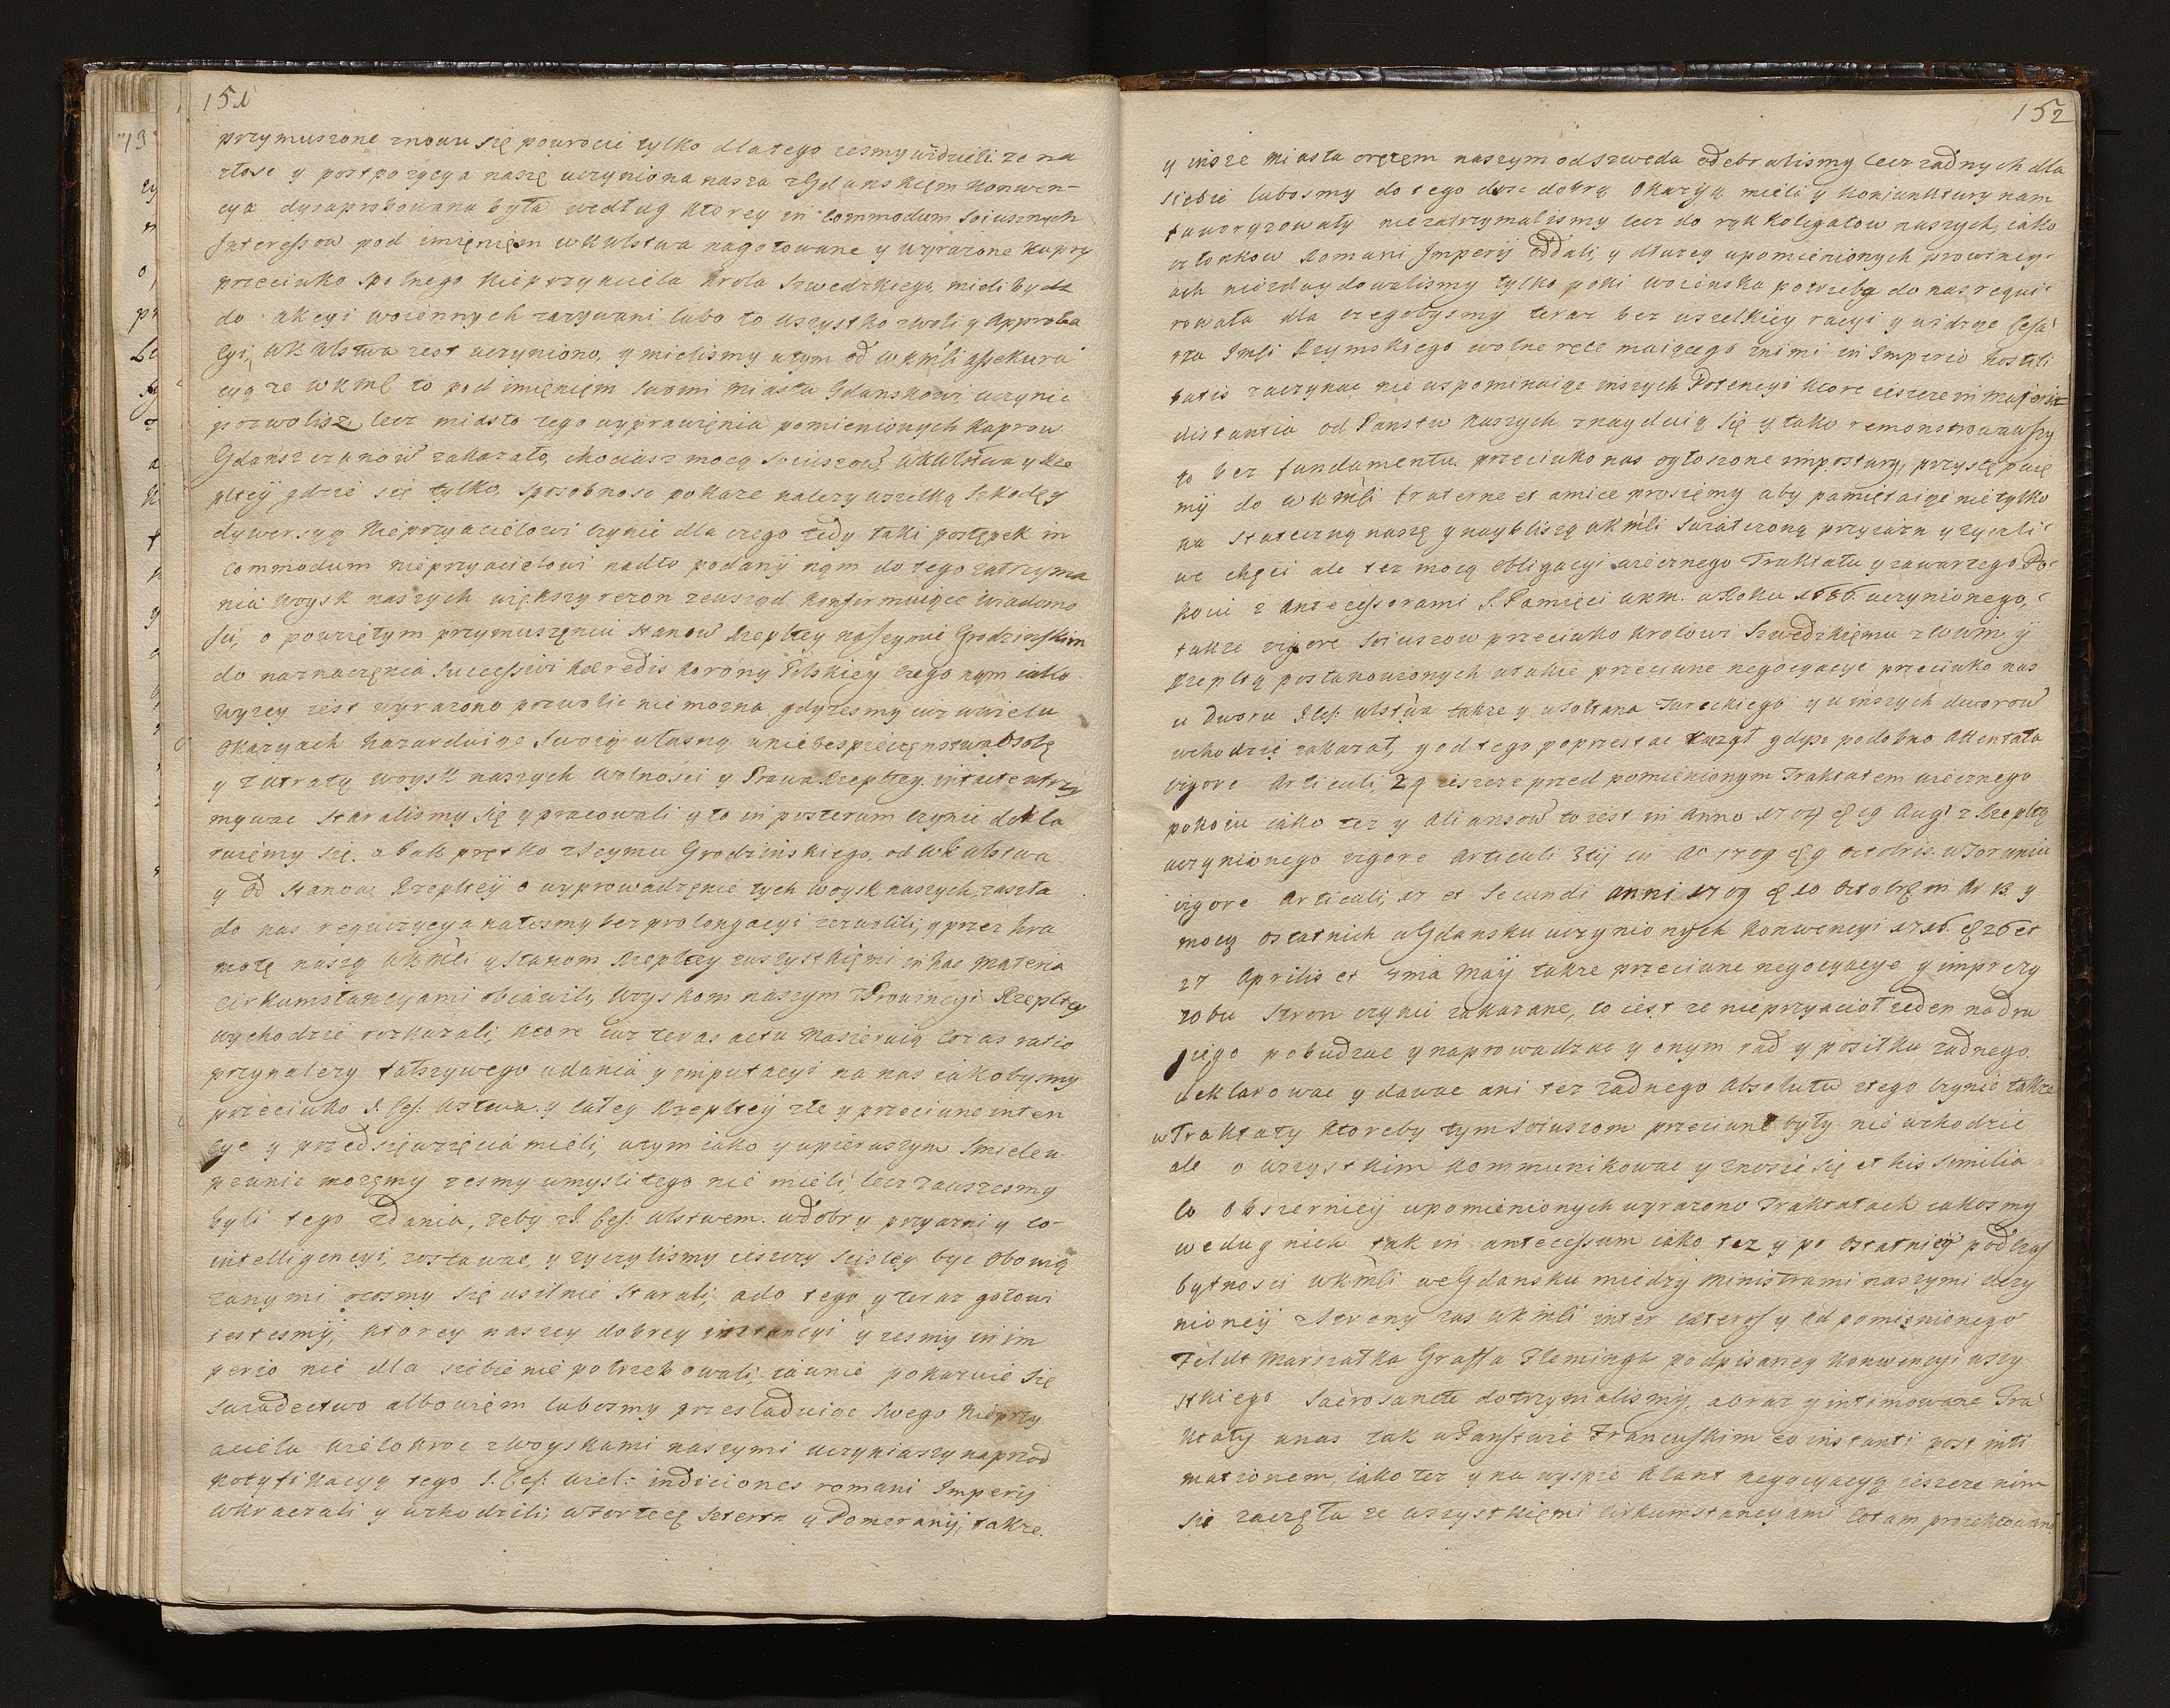 151
przymuszone znowu się powrocic tylko dlatego zesmy widzieli ze na
złosc y postpozycya naszę uczyniona nasza z Gdanskięm konwen-
cya dysaprobowana była według ktorey in Commodum soiusznych
Interessow pod imięnięm wKMstwa nagotowane y wyrazone kapry
przeciwko spolnego Nieprzyaciela krola Szwedzkiego mieli bydz
do akcyi woiennych zazywani lubo to wszystko zwoli y Approba
cyi, wKMstwa iest uczyniono, y mielismy wtym od wKMsci assekura
cyą ze wKMsc to pod imięnięm swoim Miastu Gdanskowi uczynic
pozwolisz, lecz miasto tego wyprawięnia pomienionych kaprow
Gdansczanow zakazało, chociasz mocą soiuszow wKMstwa y Rze
pltey gdzie się tylko sposobnosc pokaze nalezy wszelką szkodę y
dywersyą Nieprzyacielowi czynic dla czego tedy taki postępek in
Commodum nieprzyacielowi nadto podany nąm do tego zatrzyma
nia woysk naszych większy rezon zewsząd konfirmuiące wiadomo
sci, o powziętym przymuszęniu stanow Rzepltey na seymie Grodzinskim
do naznaczęnia Successivi haeredis korony Polskiey czego nąm iako
wyzey iest wyrazono pozwolic nie mozna, gdyzesmy iuz wwielu
okazyach hazarduiąc swoią własną wniebespieczęnstwa osobę
y zutratą woysk naszych wolności y Prawa Rzepltey intacte utrzy
mywac staralismy się y pracowali y to in posterum czynic dekla
ruięmy się. a iak prętko zseymu Grodzinskiego, od wKMstwa
y od stanow Rzepltey o wyprowadzęnie tych woysk naszych, zaszła
do nas requizycya natosmy bez prolongacyi zezwolili, y przez hra
motę naszą wKMsci y stanom Rzepltey zwszystkięmi in hac materia
cirkumstancyami obiawili, woyskom naszym z Prowincyi Rzepltey
wychodzic rozkazali, ktore iuz teras actu maszeruią coz as ratio
przynalezy fałszywego udania y imputacyi na nas iakobysmy
przeciwko I. Ces: Mstwa y całey Rzepltey złe y przeciwne inten
cye y przedsięwzięcia mieli, wtym iako y wpierwszym smiele u
pewnic mozęmy zesmy umysli tego nie mieli, lecz zawszesmy
byli tego zdania, zeby zI. Ces: Mstwem. wdobry przyazni y co-
intelligencyi, zostawac, y zyczylismy ieszczy scisley byc obowią
zanymi ocosmy się usilnie starali, ado tego y teraz gotowi
iestesmy, ktorey naszey dobrey instancyi y zesmy in im
perio nic dla siebie nie potrzebowali, iawnie pokazuie się
swiadectwo albowięm lubosmy przesladuiąc swego Nieprzy
aciela wielokroc zwoyskami naszymi uczyniwszy naprzod
notyfikacyą tego I. Ces: wiel:- in diciones romani Imperij
wkraczali y wchodzili, wfortecę Stettn y Pomeranij, także.
152
y insze miasta orężem naszym odszweda odebralismy lecz zadnych dla
siebie lubosmy do tego dosc dobrą okazyą mieli y koniunktury nam
faworyzowały niezatrzymalismy lecz do rąk koligatow naszych, iako
członkow Romani Imperij oddali, y dłuzey wpomienionych prowincy-
ach nieznaydowalismy tylko poki woienska potrzeba do nas requi-
rowała dla czegobysmy teraz bez wszelkiey racyi y widząc Cesa-
rza Imsi Rzymskiego wolne ręce maiącego znimi in Imperio hostili
tatis zaczynac nie wspominaiąc inszych Potencyi ktore ieszcze in maiori
distantia od Panstw naszych znayduią się y tako remonstrowawszy
to bez fundamentu przeciwko nas ogłoszone impostury, przystępuię
my do wKMsci fraterne et amice prosięmy aby pamiętaiąc nie tylko
na stateczną naszę y naybliszą wKMsci swiatczoną przyiazn y zyczli-
we chęci ale tez mocą obligacyi wiecznego Traktatu y zawartego Po-
koiu z Antecessorami S. Pamięci wKM. wRoku 1686. uczynionego,
takze vigore soiuszow przeciwko krolowi Szwedzkięmu zwKM. y
Rzepltą postanowionych wtakie przeciwne negocyacye przeciwko nas
u Dworu I Ces: Mstwa także y uSołtana Tureckiego y u inszych dworow
wchodzic zakazał, y od tego poprzestac kazał gdysz podobno attentata
vigore Articuli, 24 ieszcze przed pomienionym Traktatem wiecznego
pokoiu iako tez y Aliansow to iest in Anno 1704 19 Augt z Rzepltą
uczynionego vigore Articuli 3tij in Ao 1709 9 octobris. wToruniu
vigore Articuli, 17 et Secundi anni 1709 10 octobrę in Ar 13 y
mocą ostatnich wGdansku uczynionych konwencyi 1716. 26 et
27 Aprilis et 7ma Maij takze przeciwne negocyacye y imprezy
zobu stron czynic zakazane, to iest ze nieprzyacioł ieden nadru
giego pobudzac y naprowadzac y onym rad y posiłku zadnego.
deklarowac y dawac ani tez zadnego absolutu ztego czynic także
wTraktaty ktoreby tym soiuszom przeciwne były nie wchodzic
ale o wszystkim kommunikowac y znosic się et his similia
co obszerniey wpomienionych wyrazono Traktatach iakosmy
według nich tak in antecessum iako tez y po ostatniey podczas
bytnosci wKMsci weGdansku miedzy ministrami naszymi uczy
nioney zstrony zas wKMsci inter caeteros y od pomięnionego
Feldt Marszałka Graffa Fleminga podpisaney konwencyi wszy
stkiego Sacrosancte dotrzymalismy, aoraz y intimowane Tra
ktaty unas iak wPanstwie Francuskim eo instanti post inti
mationem, iako tez y na wyspie Alant negocyacyą ieszcze nim
się zaczęła ze wszystkięmi cirkumstancyami cotam proiektowano